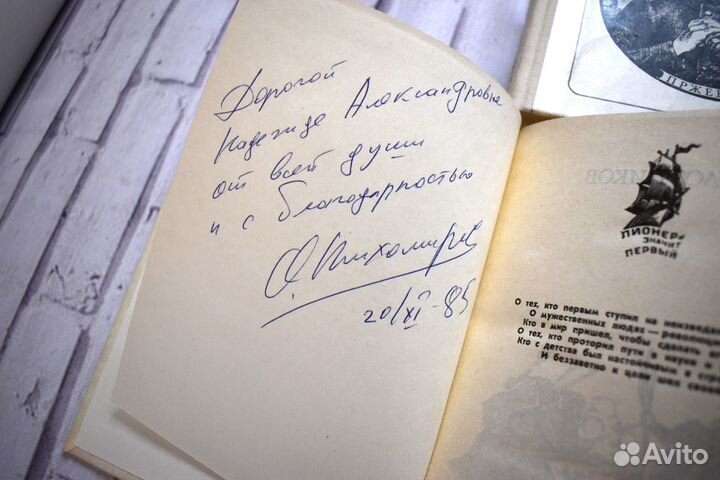 Дорогой
Надежде Александровне
от всей души
и с благодарностью
О. Тихомиров
20/XI-85
ПРЖЕ
ПИОНЕР
ЗНАЧИТ
ПЕРВЫЙ
О тех, кто первым ступил на неизведан
О мужественных людях — революцио
Кто в мир пришел, чтобы сделать е
О тех, кто проторил пути в науке и
Кто с детства был настойчивым в стр
И беззаветно к цели шел свое
Avito